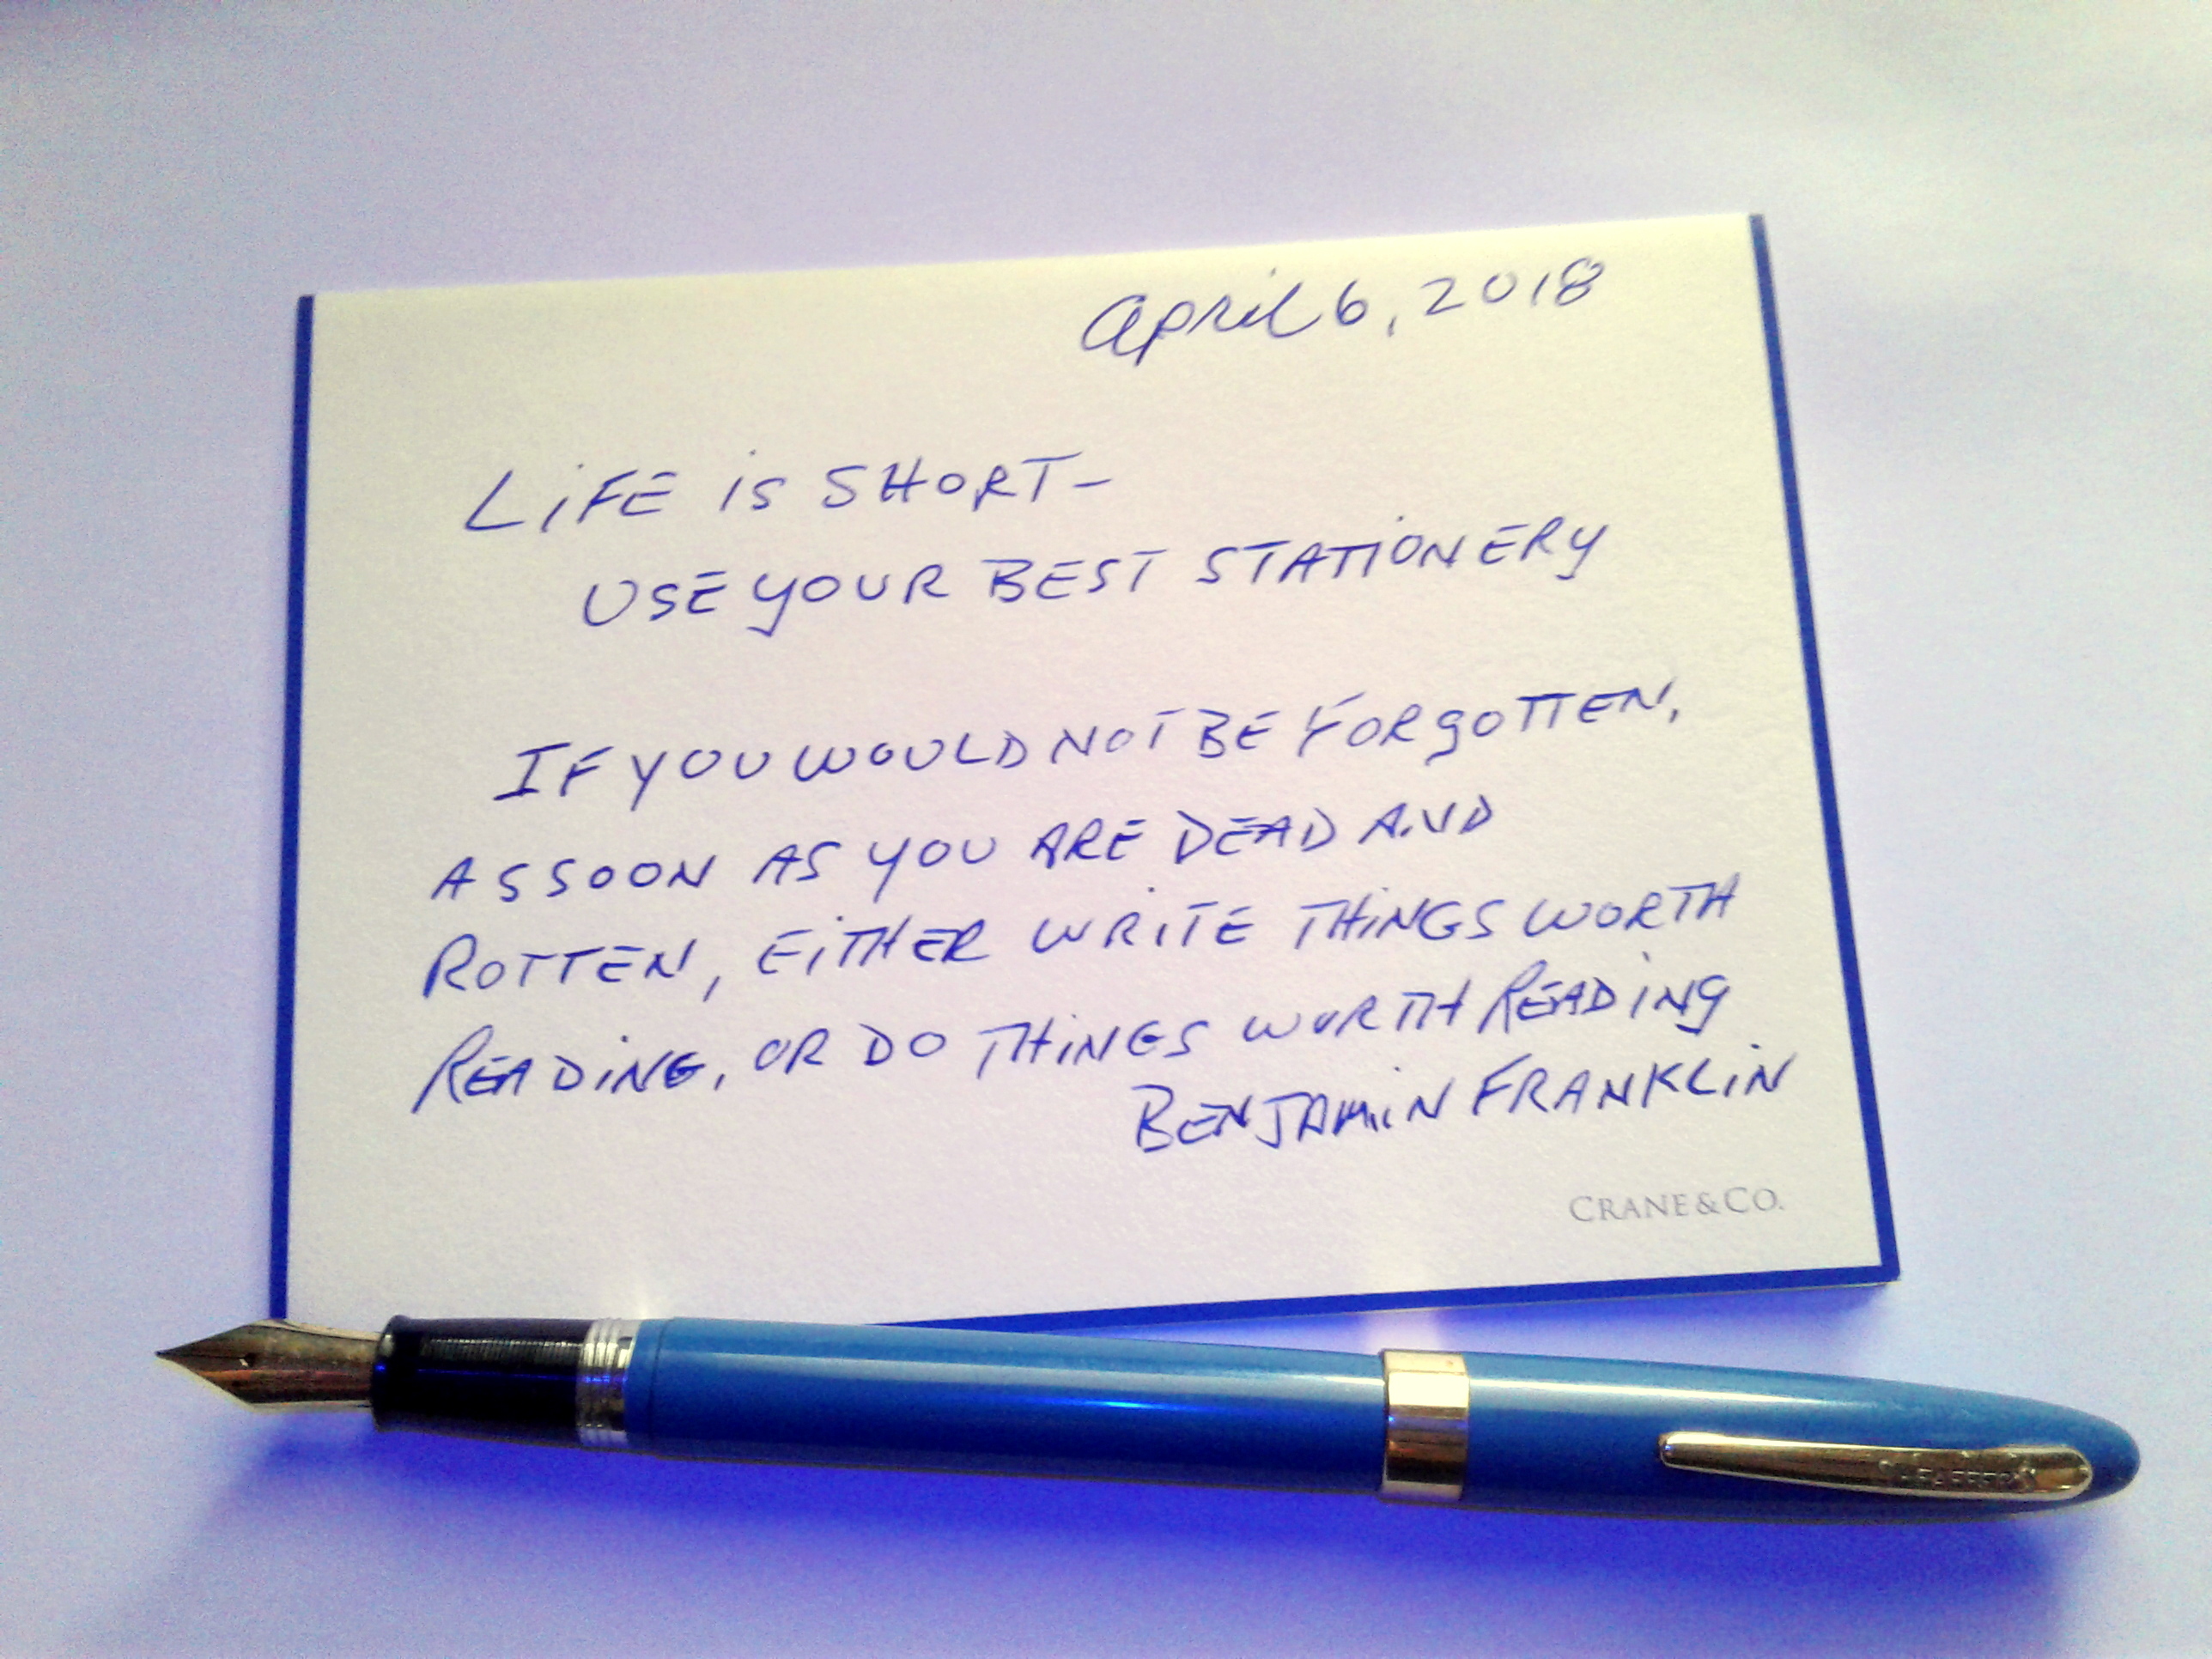 April 6, 2018
LiFE iS SHORT-
USE YOUR BEST STATiONERY
IF YOU WOULD NOT BE FORGOTTEN,
AS SOON AS YOU ARE DEAD AND
ROTTEN, EiTHER WRiTE THiNGS WORTH
READiNG, OR DO THiNGS WORTH READiNG
BENJAMiN FRANKLiN
CRANE & CO.
SHEAFFER'S